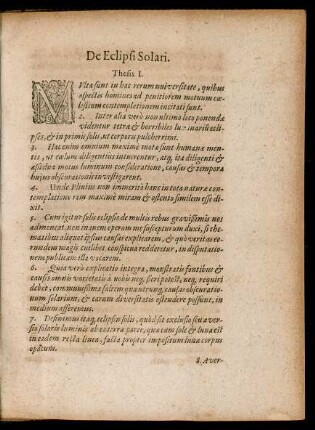 De Eclipsi Solari.
Thesis I.
MVlta sunt in hac rerum universitate, quibus
aspectis homines ad penitiorem motuum cæ-
lestium contemplationem incitati sunt.
2. Inter alia verò non ultimo loco ponenda
videntur tetræ & horribiles luminariũ ecli-
pses, & in primis solis, ut corporis pulcherrimi.
3. Hac enim omnium maximè mota sunt humanæ men-
tes, ut cælum diligentius intuerentur, atq, ita diligenti &
assidua motus luminum consideratione, causas & tempora
hujus obscurationis investigarent.
4. Unde Plinius non immeritò hanc in tota naturæ con-
templatione rem maximè miram & ostento similem esse di-
xit.
5. Cum igitur solis eclipsis de multis rebus gravissimis nos
admoneat, non inanem operam me suscepturum duxi, si the-
matibus aliquot ipsius causas explicarem, & quò veritas ea-
rundem magis cuilibet conspicua redderetur, in disputatio-
nem publicam ista vocarem.
6. Quia verò explicatio integra, manifestis fontibus &
causis omnis varietatis à nobis neq, sieri potest, neq, requiri
debet, commodissima saltem quæ sunt, causas obscuratio-
num solarium, & earum diversitatis ostendere possunt, in
medium afferemus.
7. Definimus itaq, eclipsin solis, quòd sit exclusio seu aver-
sio solaris luminis ab ea terræ parte, quæ cum sole & luna est
in eadem recta linea, facta propter impositum lunæ corpus
opacum.
8. Aver-